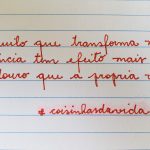 uilo que transforma
ncia tem efeito mais
douro que a propria
#coisinhasdavida